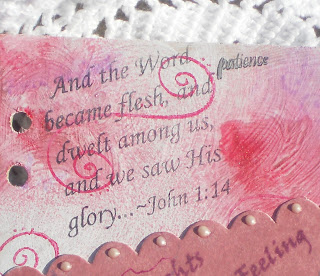 And the Word
patience
became flesh, and
dwelt among us,
and we saw His
glory...~John 1:14
Feeling